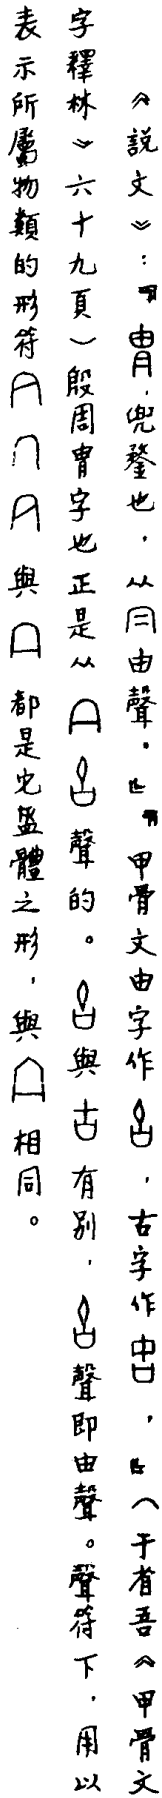 《説文》：「冑，兜鍪也，从冃由聲。」「甲骨文由字作，古字作，」（于省吾《甲骨文
字釋林》六十九頁）殷周冑字也正是从聲的。與古有别，聲即由聲。聲符下，用以
表示所屬物類的形符與都是皃盔體之形，與相同。